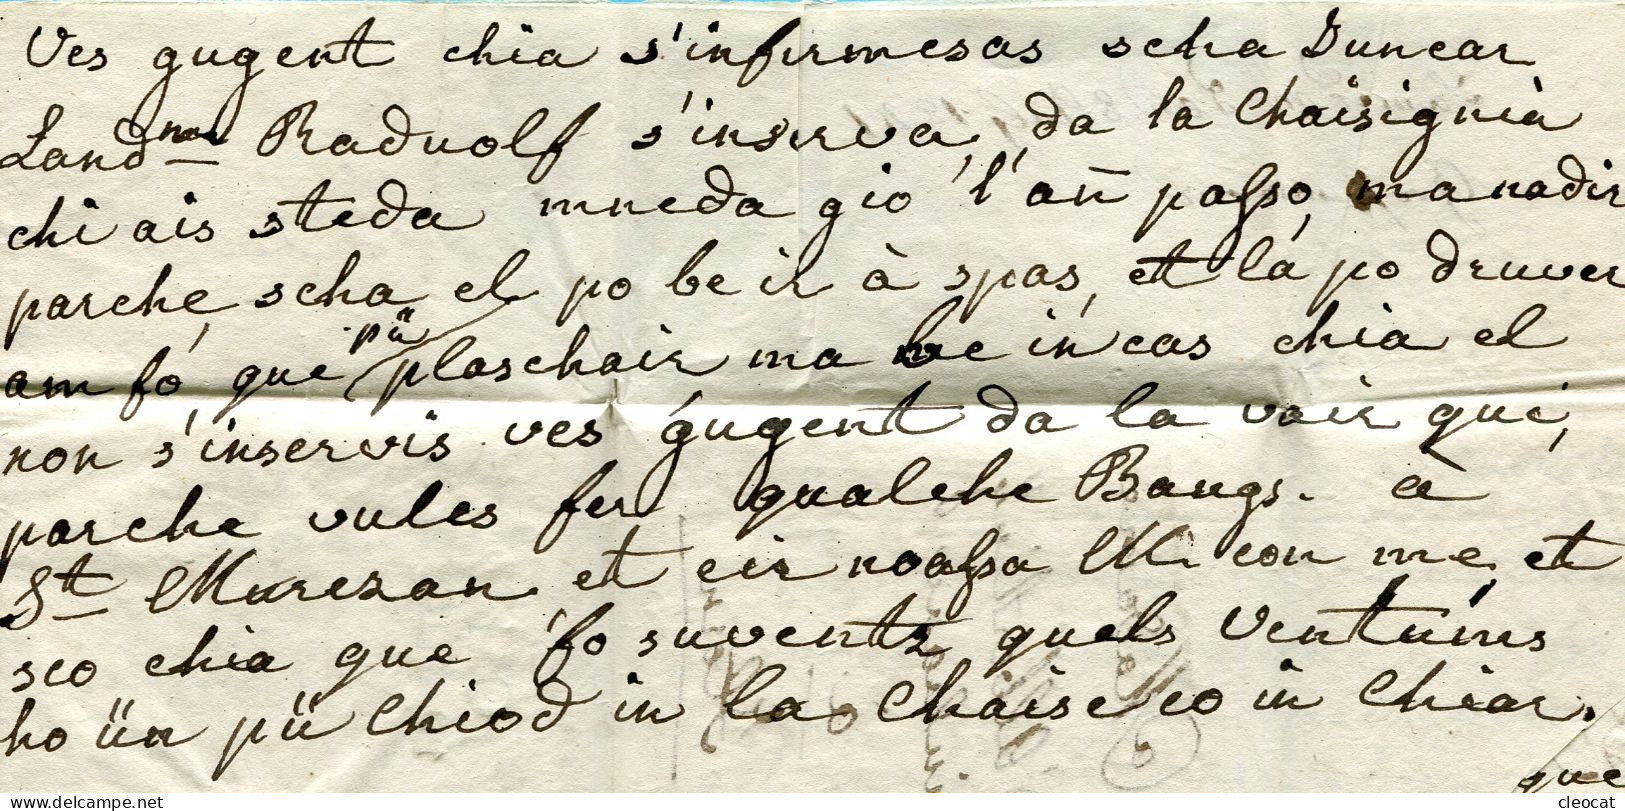 Ves gugent chia s'infurmesas scha Juncar
Land<sup>ma</sup> Raduolf s'inserva, da la Chaisignia
chi ais steda mneda gio l'añ passo, ma nadir
parche, scha el po be ir à spas, et la po druver
am fo, que pü plaschair ma be in cas chia el
non s'inservis ves gugent da la vair qui,
parche vules fer qualche Baugs. à
St Murezan et eir noassa M. con me, et
seo chia que fo suventz quels Ventüms
ho ün pü Chiod in la Chaise co in Chiar.
que
cleocat